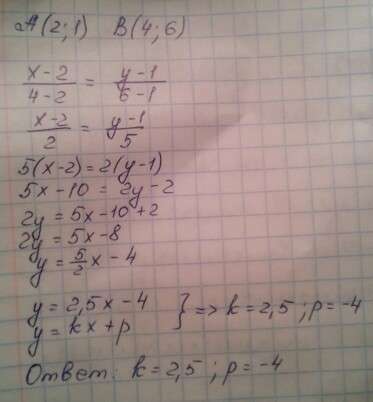 A(2;1) B(4;6)
x-2/4-2 = y-1/6-1
x-2/2 = y-1/5
5(x-2)=2(y-1)
5x-10 = 2y-2
2y = 5x-10+2
2y = 5x-8
y = 5/2x-4
y = 2,5x-4
y = kx+p } => k=2,5; p=-4
Ответ: k=2,5; p=-4